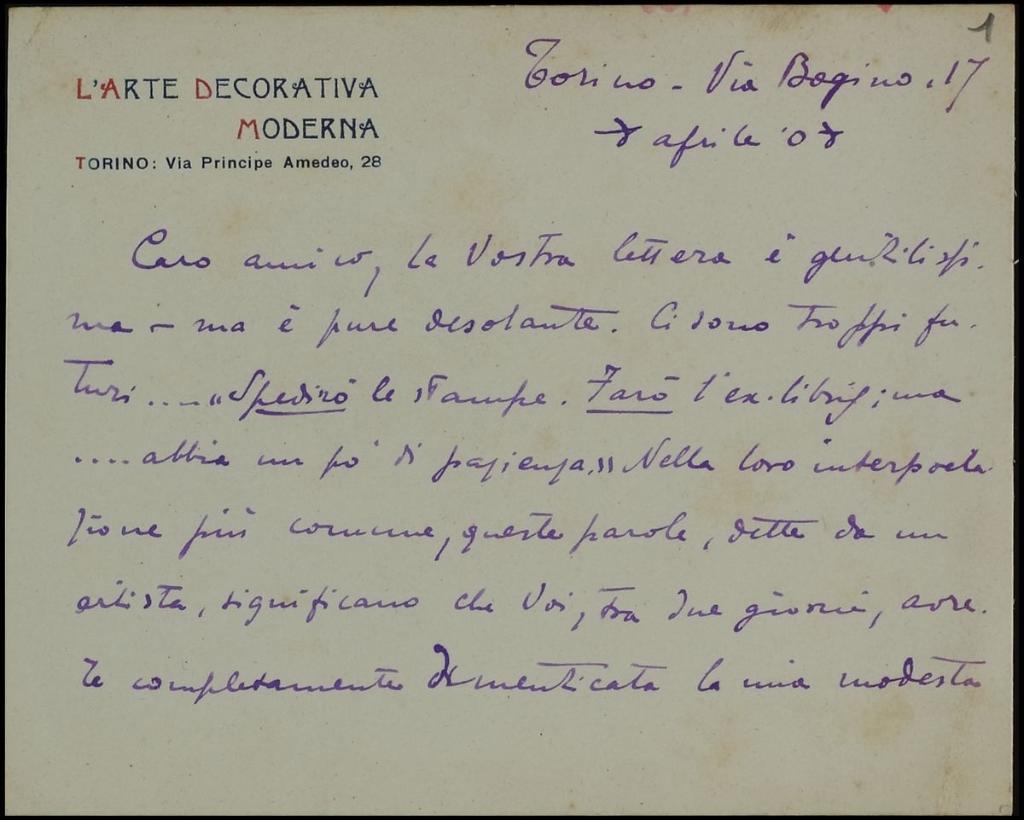 1
L'ARTE DECORATIVA
MODERNA
TORINO: Via Principe Amedeo, 28
Torino - Via Bogino, 17
7 aprile '07
Caro amico, la Vostra lettera è gentilissi-
ma - ma è pure desolante. Ci sono troppi fu-
turi .... "Spedirò le stampe. Farò l'ex-libris; ma
.... abbia un po' di pazienza." Nella loro interpreta-
zione più comune, queste parole, dette da un
artista, significano che Voi, tra due giorni, avre-
te completamente dimenticata la mia modesta